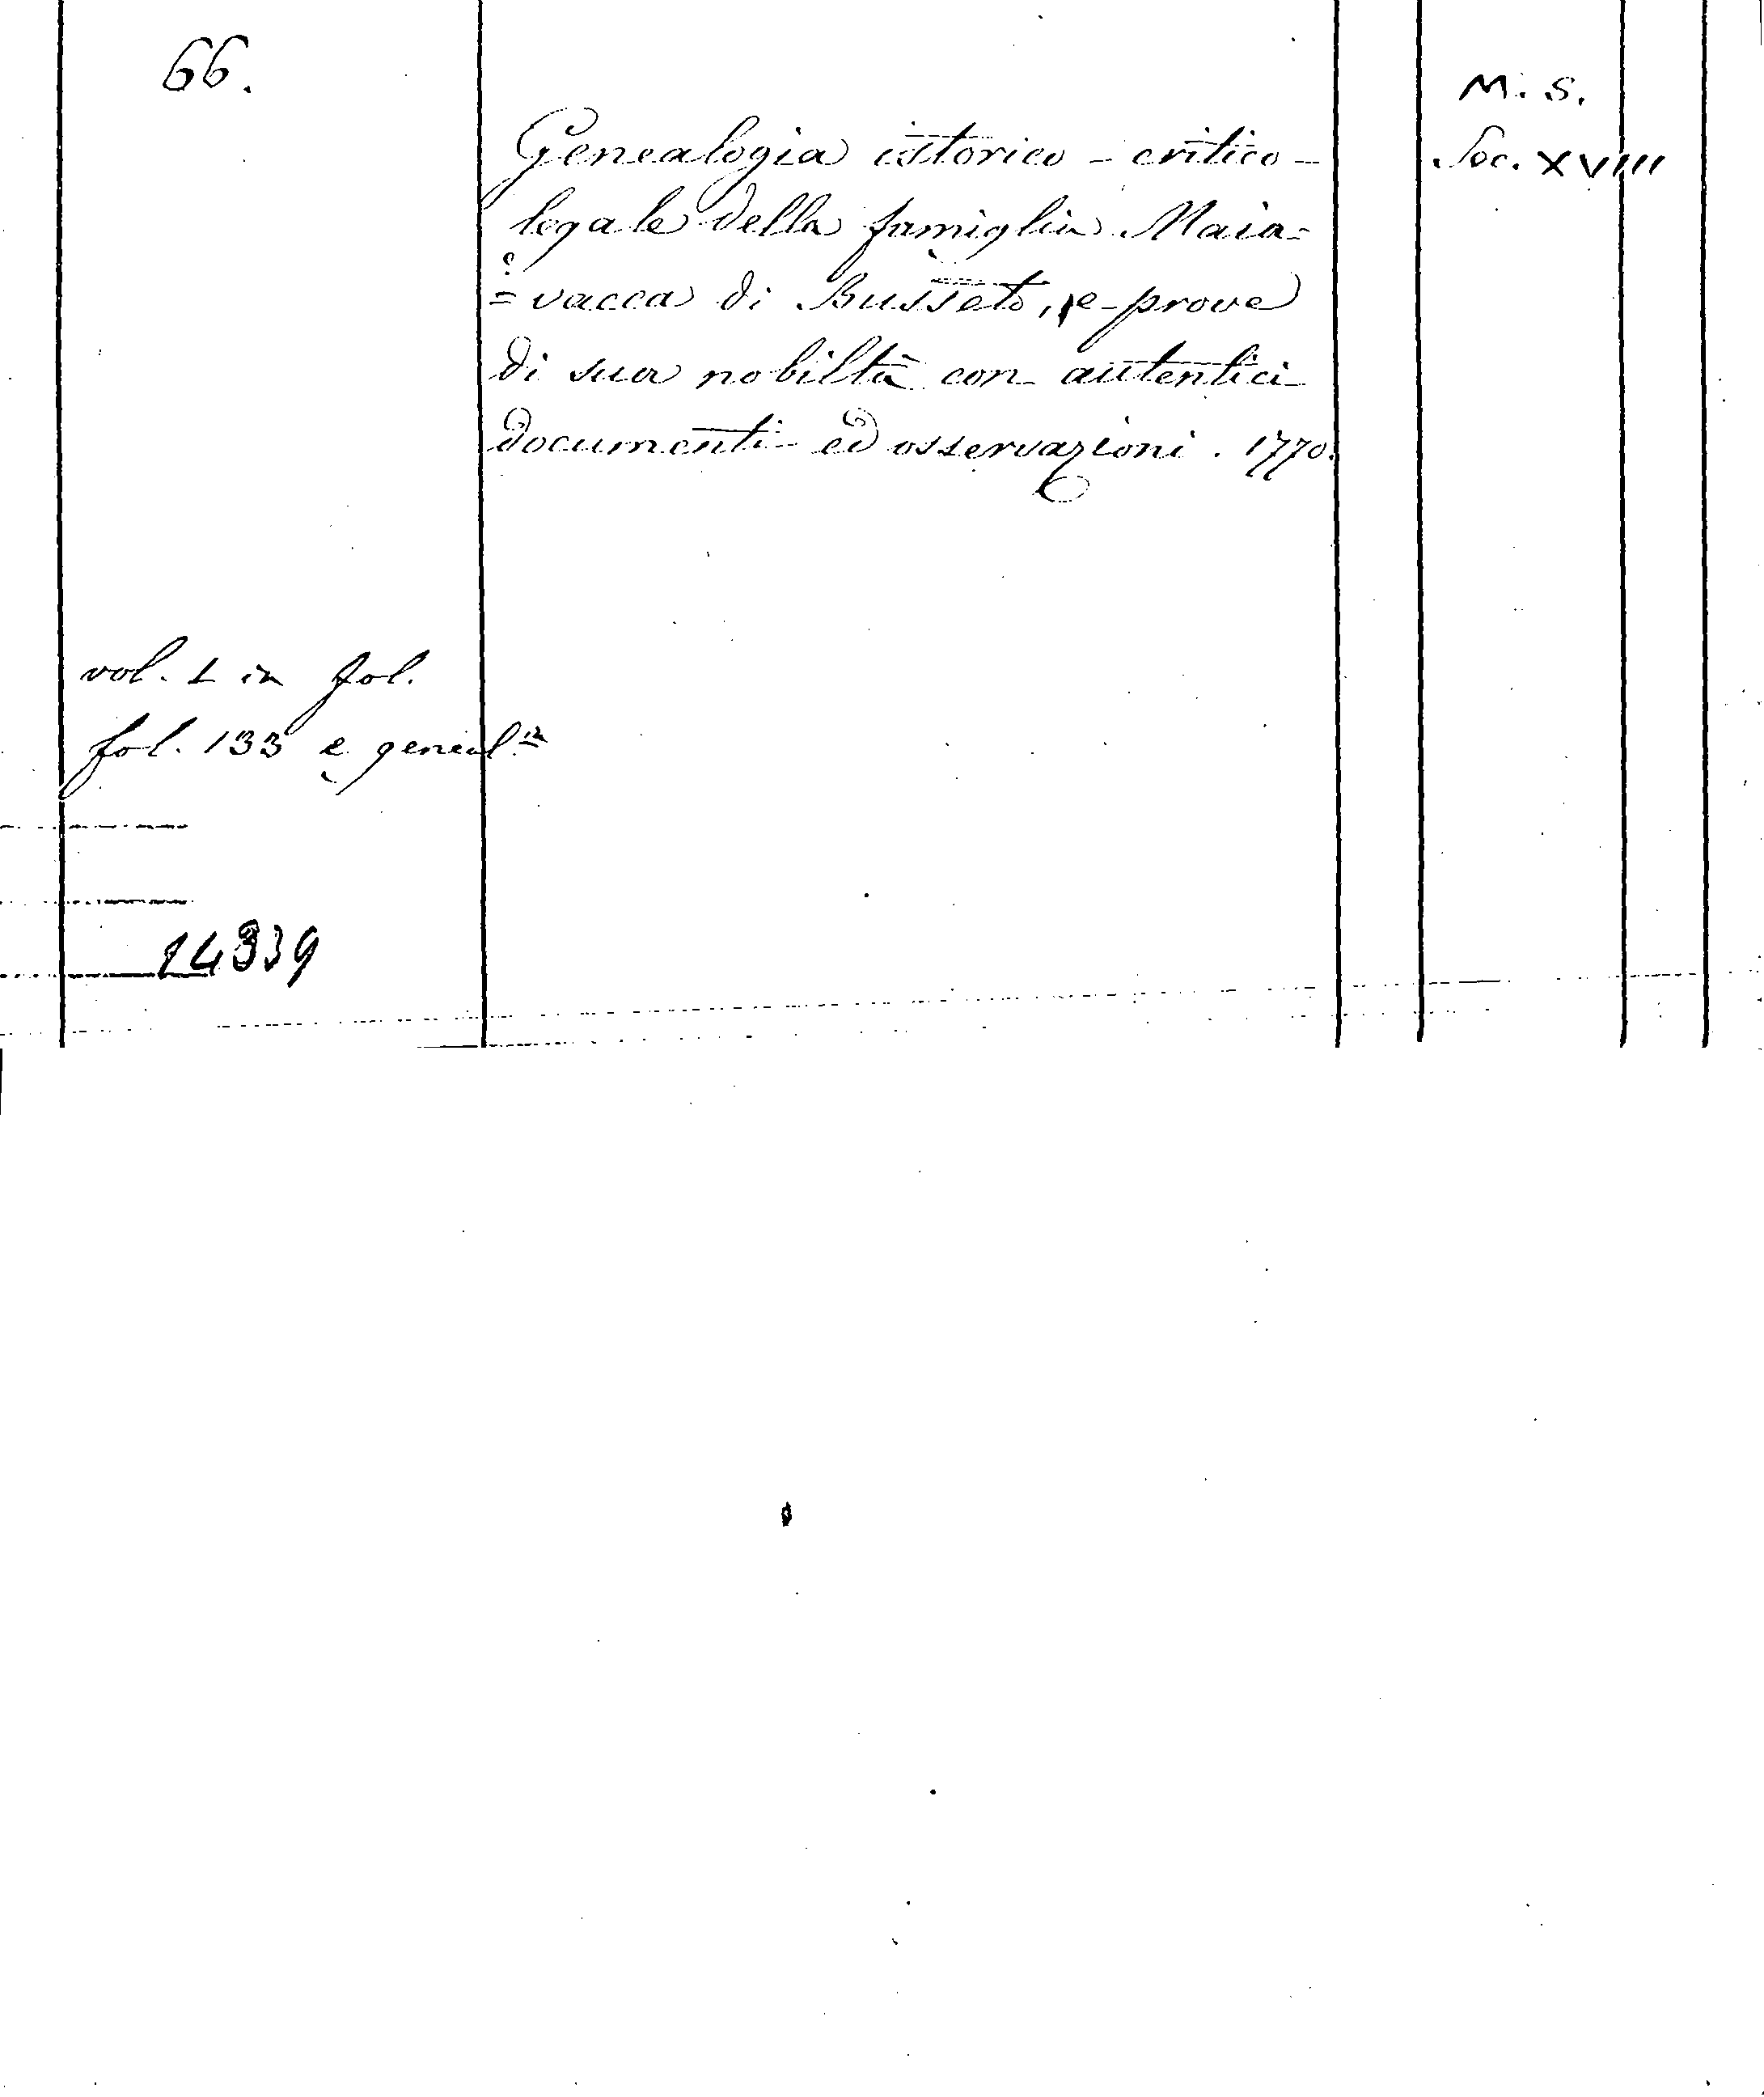 66.
Genealogia istorico - critico -
legale della famiglia Maia=
=vacca di Busseto, e prove
di sua nobiltà con autentici
documenti ed osservazioni. 1770.
M. S.
Sec. XVIII
vol. 1 in fol.
fol. 133 e
14339